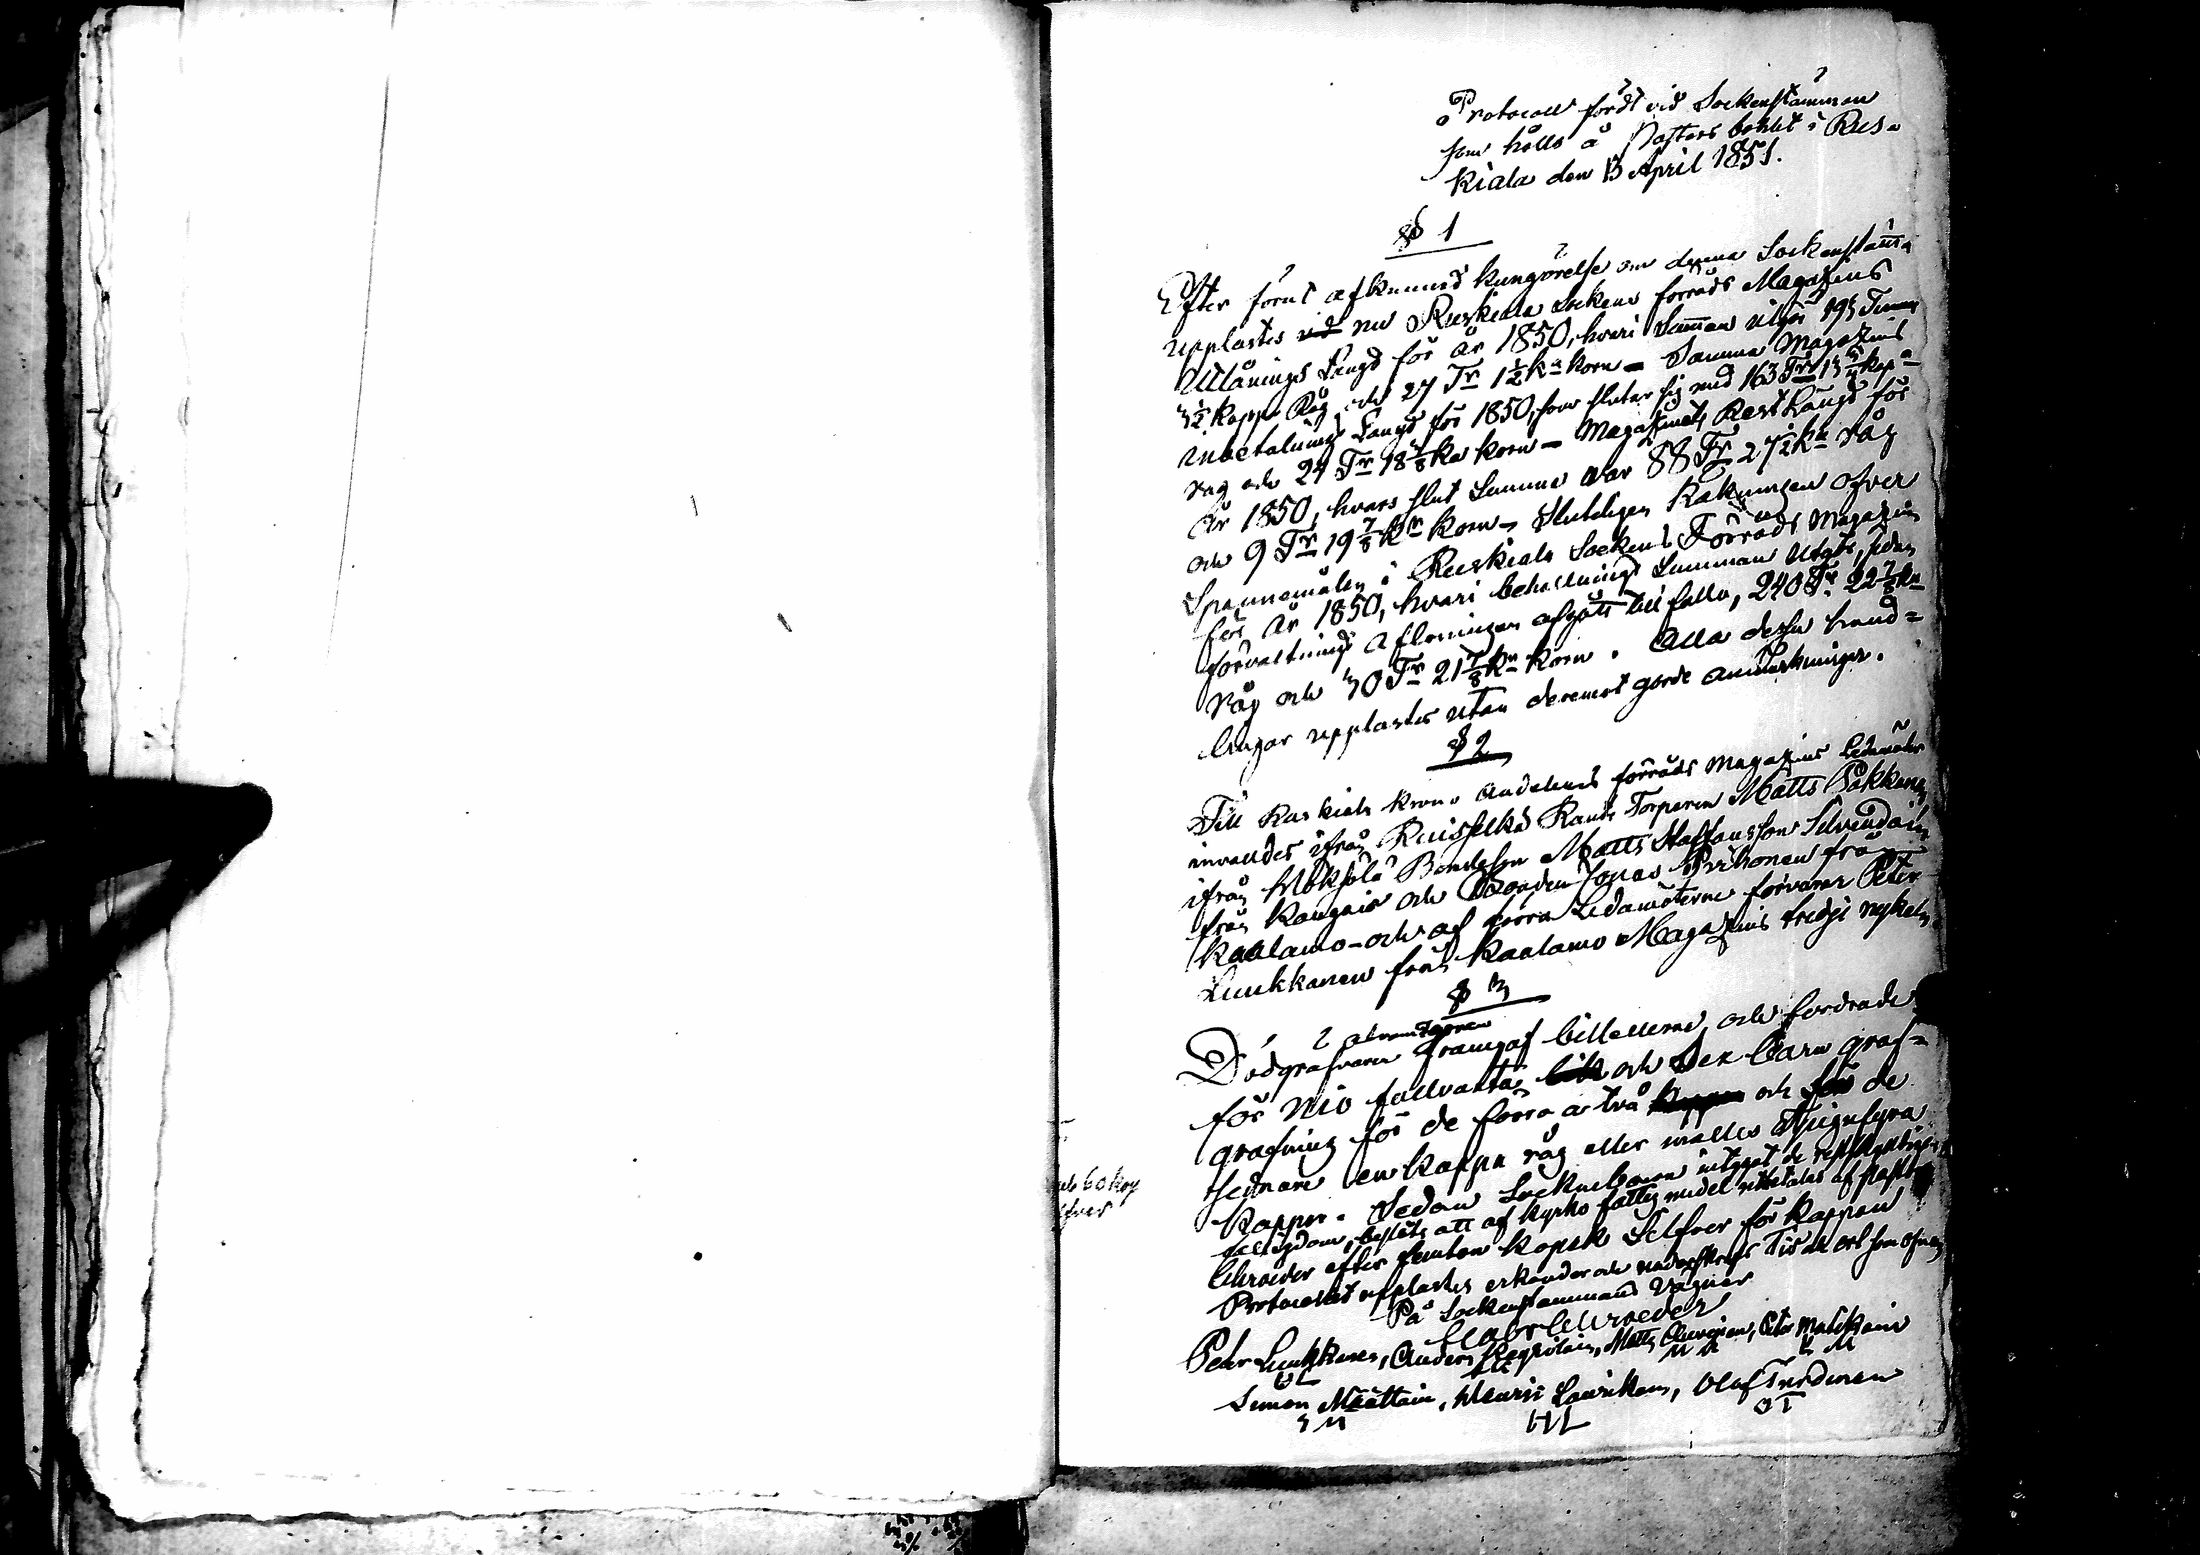 Protocoll fördt vid Sockenstämman
som hölls å Pastors bohlet i Rus-
kiala den 13 April 1851.
§ 1
Efter förut afkunnad kungörelse om denna Sockenstäm̄a
upplästes nu Ruskiala Sockens förråds Magazins
Utlånings Längd för år 1850, hvari Sum̄an utgör 195 Tunnor
3½ kappe Råg och 27 Tr 1½ ka korn – Samma Magazins
inbetalnings Längd för 1850, som slutar sig med 163 Tr 13 kap
råg och 24 Tr 18 ka korn – Magazinets Rest Längd för
år 1850, hvars slut Summa var 88 Tr 27½ kr råg
och 9 Tr 19⅞ kr korn – Slutligen Räkningen öfver
Spannemålen i Ruskiala Sockens Förråds Magazin
för år 1850, hvari behållnings Summan utgör, sedan
förvaltnings aflöningen afgått till fallo, 240 Tr 22⅞ kr
Råg och 30 Tr 21⅞ kr korn. Alla dessa hand=
lingar upplästes utan deremot gjorde anmärkningar.
§ 2
Till Ruskiala krono andelens förråds Magazins Ledamöter
invaldes ifrån Ruisselkä Rante Torparen Matts Pakkanen
ifrån Bondeson Matts Staffansson Silvendoin
från och Bonden Jonas från
Kaalamo – och af förra Ledamöterne förvarar Peter
Luukkanen från Kaalamo Magazins tredje nykeln
§ 3
Dödgräfvaren framgaf billetterne och fordrade
för nio fullvuxta och Sex barn graf=
grafning för de förra a två och för de
sednare en kappa råg eller inalles Tjugufyra
Kappar. Sedan Socknboerne intygat de
fattigdom, beslöts att af kyrko fattig medel utbetalas af Pastor
Schroeder efter femton kopek Silfver för kappan
Protocollet upplästes erkändes och underskrefs Tid och ort som ofvan
På Sockenstämmans Vägnar
Gabr Schroeder
Peter Luukkanen, Anders, Matts, Peter Matikain
PL
Simon Määttäin, Henric Lauikkan, Olof Turdinen
SM HL OT
60 kop